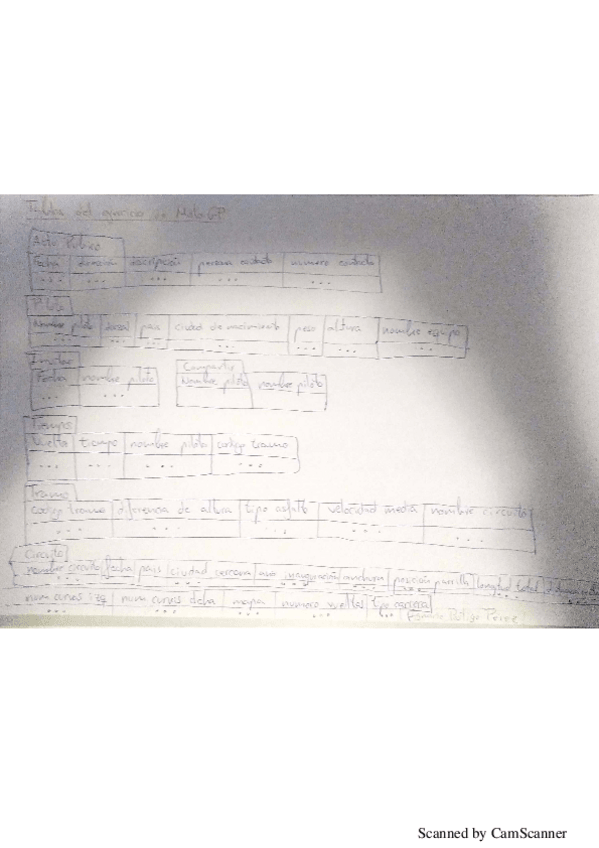 Tablas del ejercicio de Moto GP
Acto Publico
Fecha dirección descripción persona contacto numero contacto
... ... ... ... ...
Piloto
Nombre piloto dorsal pais ciudad de nacimiento peso altura nombre equipo
... ... ... ... ... ... ...
Compartir
Fecha nombre piloto Nombre piloto nombre piloto
... ... ... ...
Tiempos
Vuelta tiempo nombre piloto codigo tramo
... ... ... ...
Tramo
codigo tramo diferencia de altura tipo asfalto velocidad media nombre circuito
... ... ... ... ...
Circuito
nombre circuito fecha pais ciudad cercana año inauguración anchura posición parrilla longitud total
... ... ... ... ... ... ... ...
num curvas izq num curvas dcha mapa numero vueltas tipo carrera
... ... ... ... ...
Perez
Scanned by CamScanner